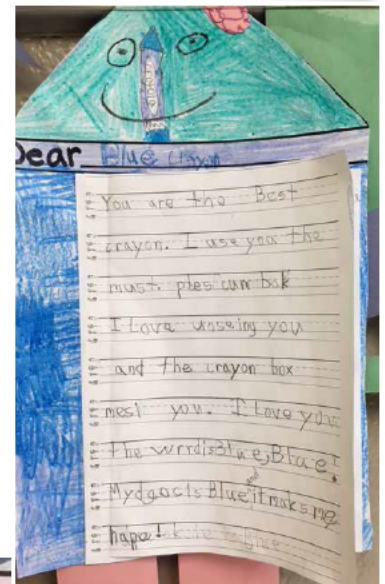 Dear Blue Crayon
You are the Best
crayon. I use you the
must. ples cum bak
I Love unseing you
and the crayon box
mest you. I Love you
the wrrdis Blue, Blue!
My dgocis Blue it maks me
hape!